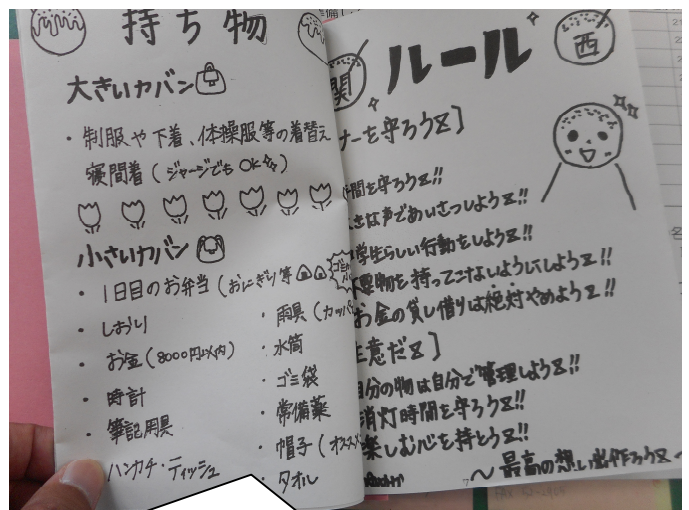 持ち物
大きいカバン
・制服や下着、体操服等の着替え
寝間着(ジャージでもOK)
小さいカバン
・1日目のお弁当(おにぎり等
・しおり
・お金(8000円以内)
・時計
・筆記用具
・ハンカチ・ティッシュ
・雨具(カッパ
・水筒
・ゴミ袋
・常備薬
・帽子(オススメ
・タオル
関 ルール 西
ナーを守ろう〆]
時間を守ろう〆!!
きな声であいさつしよう〆!!
学生らしい行動をしよう〆!!
要物を持ってこないようにしよう〆!!
お金の貸し借りは絶対やめよう〆!!
注意だ〆]
自分の物は自分で管理しよう〆!!
消灯時間を守ろう〆!!
楽しむ心を持とう〆!!
~最高の想い出作ろう〆~
7